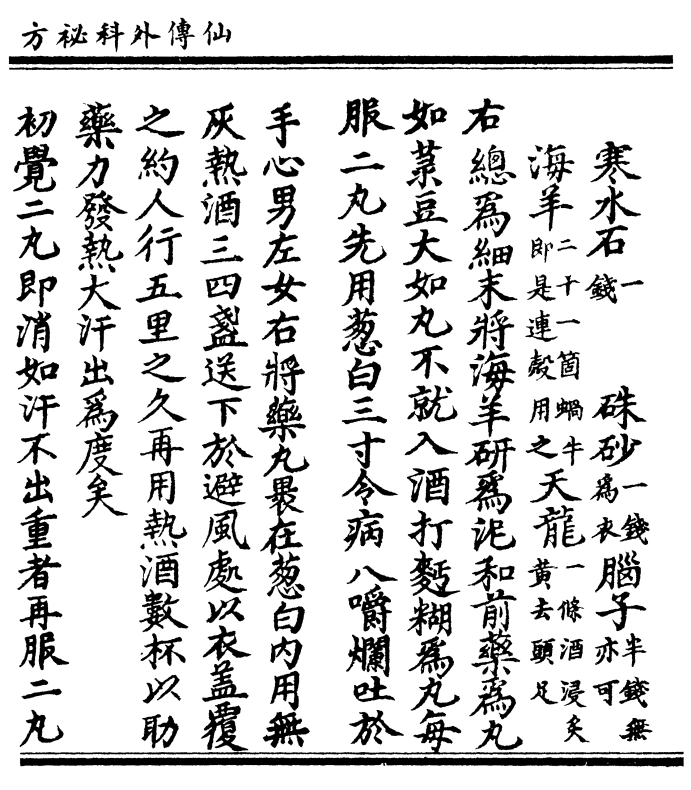 仙傳外科祕方
寒水石一錢　硃砂一錢爲衣　腦子半錢無亦可
海羊二十一箇蝸牛即是連殼用之　天龍一條酒浸炙黃去頭足
右總爲細末將海羊研爲泥和前藥爲丸
如菉豆大如丸不就入酒打麪糊爲丸每
服二丸先用葱白三寸令病人嚼爛吐於
手心男左女右將藥丸褁在葱白內用無
灰熱酒三四盞送下於避風處以衣蓋覆
之約人行五里之久再用熱酒數杯以助
藥力發熱大汗出爲度矣
初覺二丸即消如汗不出重者再服二丸